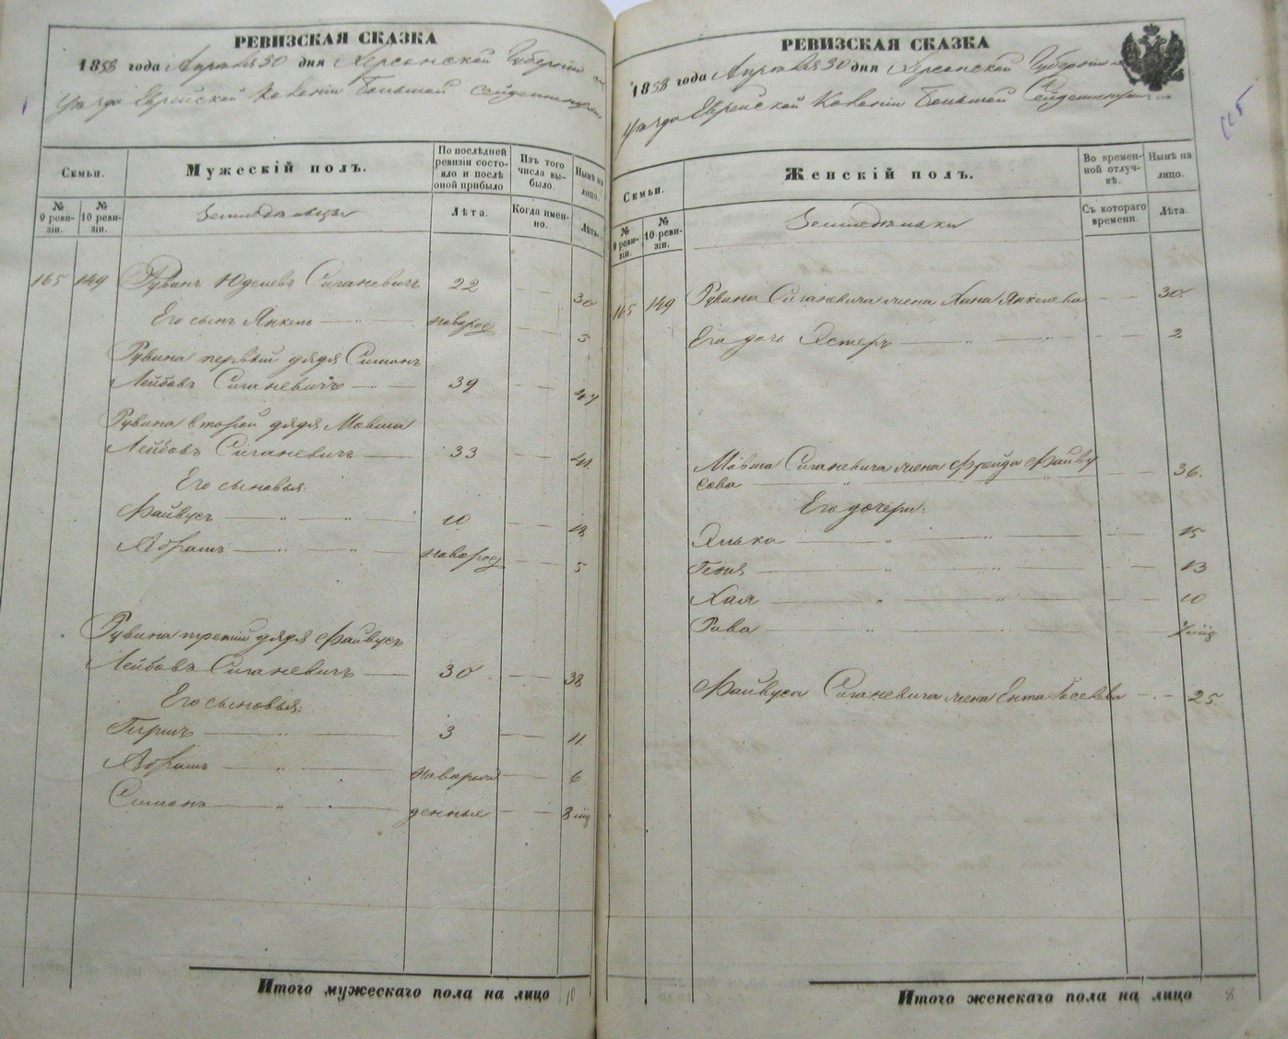 РЕВИЗСКАЯ СКАЗКА
1858 года Апреля 30 дня Херсонской Губернии
уезда Еврейской Колонии Большой Сейдеминухи
Семьи.
Мужескій полъ.
По последней ревизіи состояло и послѣ оной прибыло
Изъ того числа выбыло.
Нынѣ на лицо.
№ 9 ревизіи.
№ 10 ревизіи.
Земледельцы
Лѣта.
Когда именно.
Лѣта.
165 149 Рувинъ Юделевъ Сиганевичъ 22 30
Его сынъ Янкель новорож 5
Рувина первый дядя Симонъ
Лейбовъ Сиганевичъ 39 47
Рувина второй дядя Мовша
Лейбовъ Сиганевичъ 33 41
Его сыновья:
Файвусъ 10 18
Абрамъ новорож 5
Рувина третий дядя Файвусъ
Лейбовъ Сиганевичъ 30 38
Его сыновья:
Гиршъ 3 11
Абрамъ новорож 6
Симонъ денные 8
Итого мужескаго пола на лицо 10
РЕВИЗСКАЯ СКАЗКА
1858 года Апреля 30 дня Херсонской Губернии
уезда Еврейской Колонии Большой Сейдеминухи
115
Семьи.
Женскій полъ.
Во временной отлучкѣ.
Нынѣ на лицо.
№ 9 ревизіи.
№ 10 ревизіи.
Земледельки
Съ котораго времени.
Лѣта.
165 149 Рувина Сиганевича жена Хана Янкелева 30
Его дочь Эстеръ 2
Мовша Сиганевича жена Фрейда Файву
сова 36
Его дочери:
Элька 15
Геня 13
Хая 10
Рива
Файвуса Сиганевича жена Ента 25
Итого женскаго пола на лицо 8